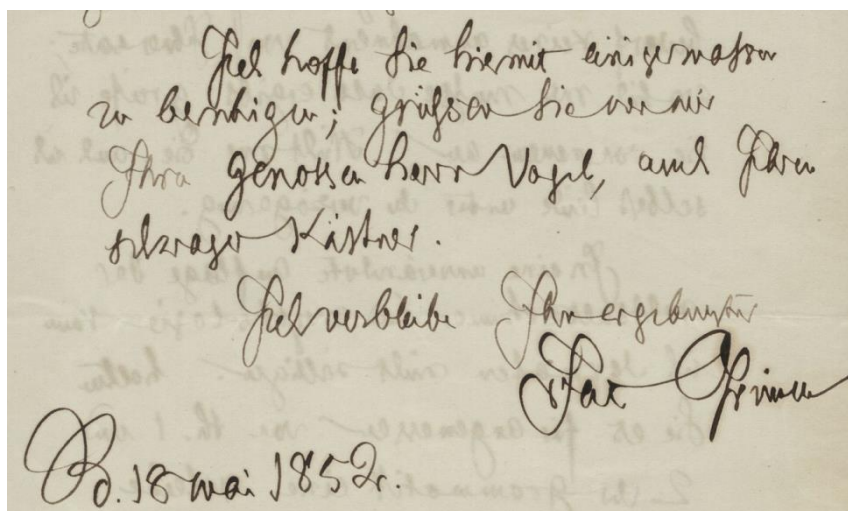 Ich hoffe Sie hiermit einigermassen
zu beruhigen; grüssen Sie von mir
Ihren genossen herrn Vogel, auch Ihren
schwager Kästner.
Ich verbleibe Ihr ergebenster
Jac Grimm
B. 18 mai 1852.